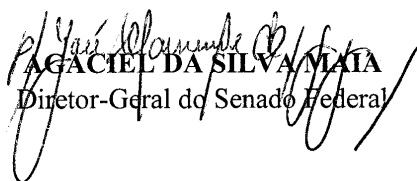 AGACIEL DA SILVA MAIA
Diretor-Geral do Senado Federal